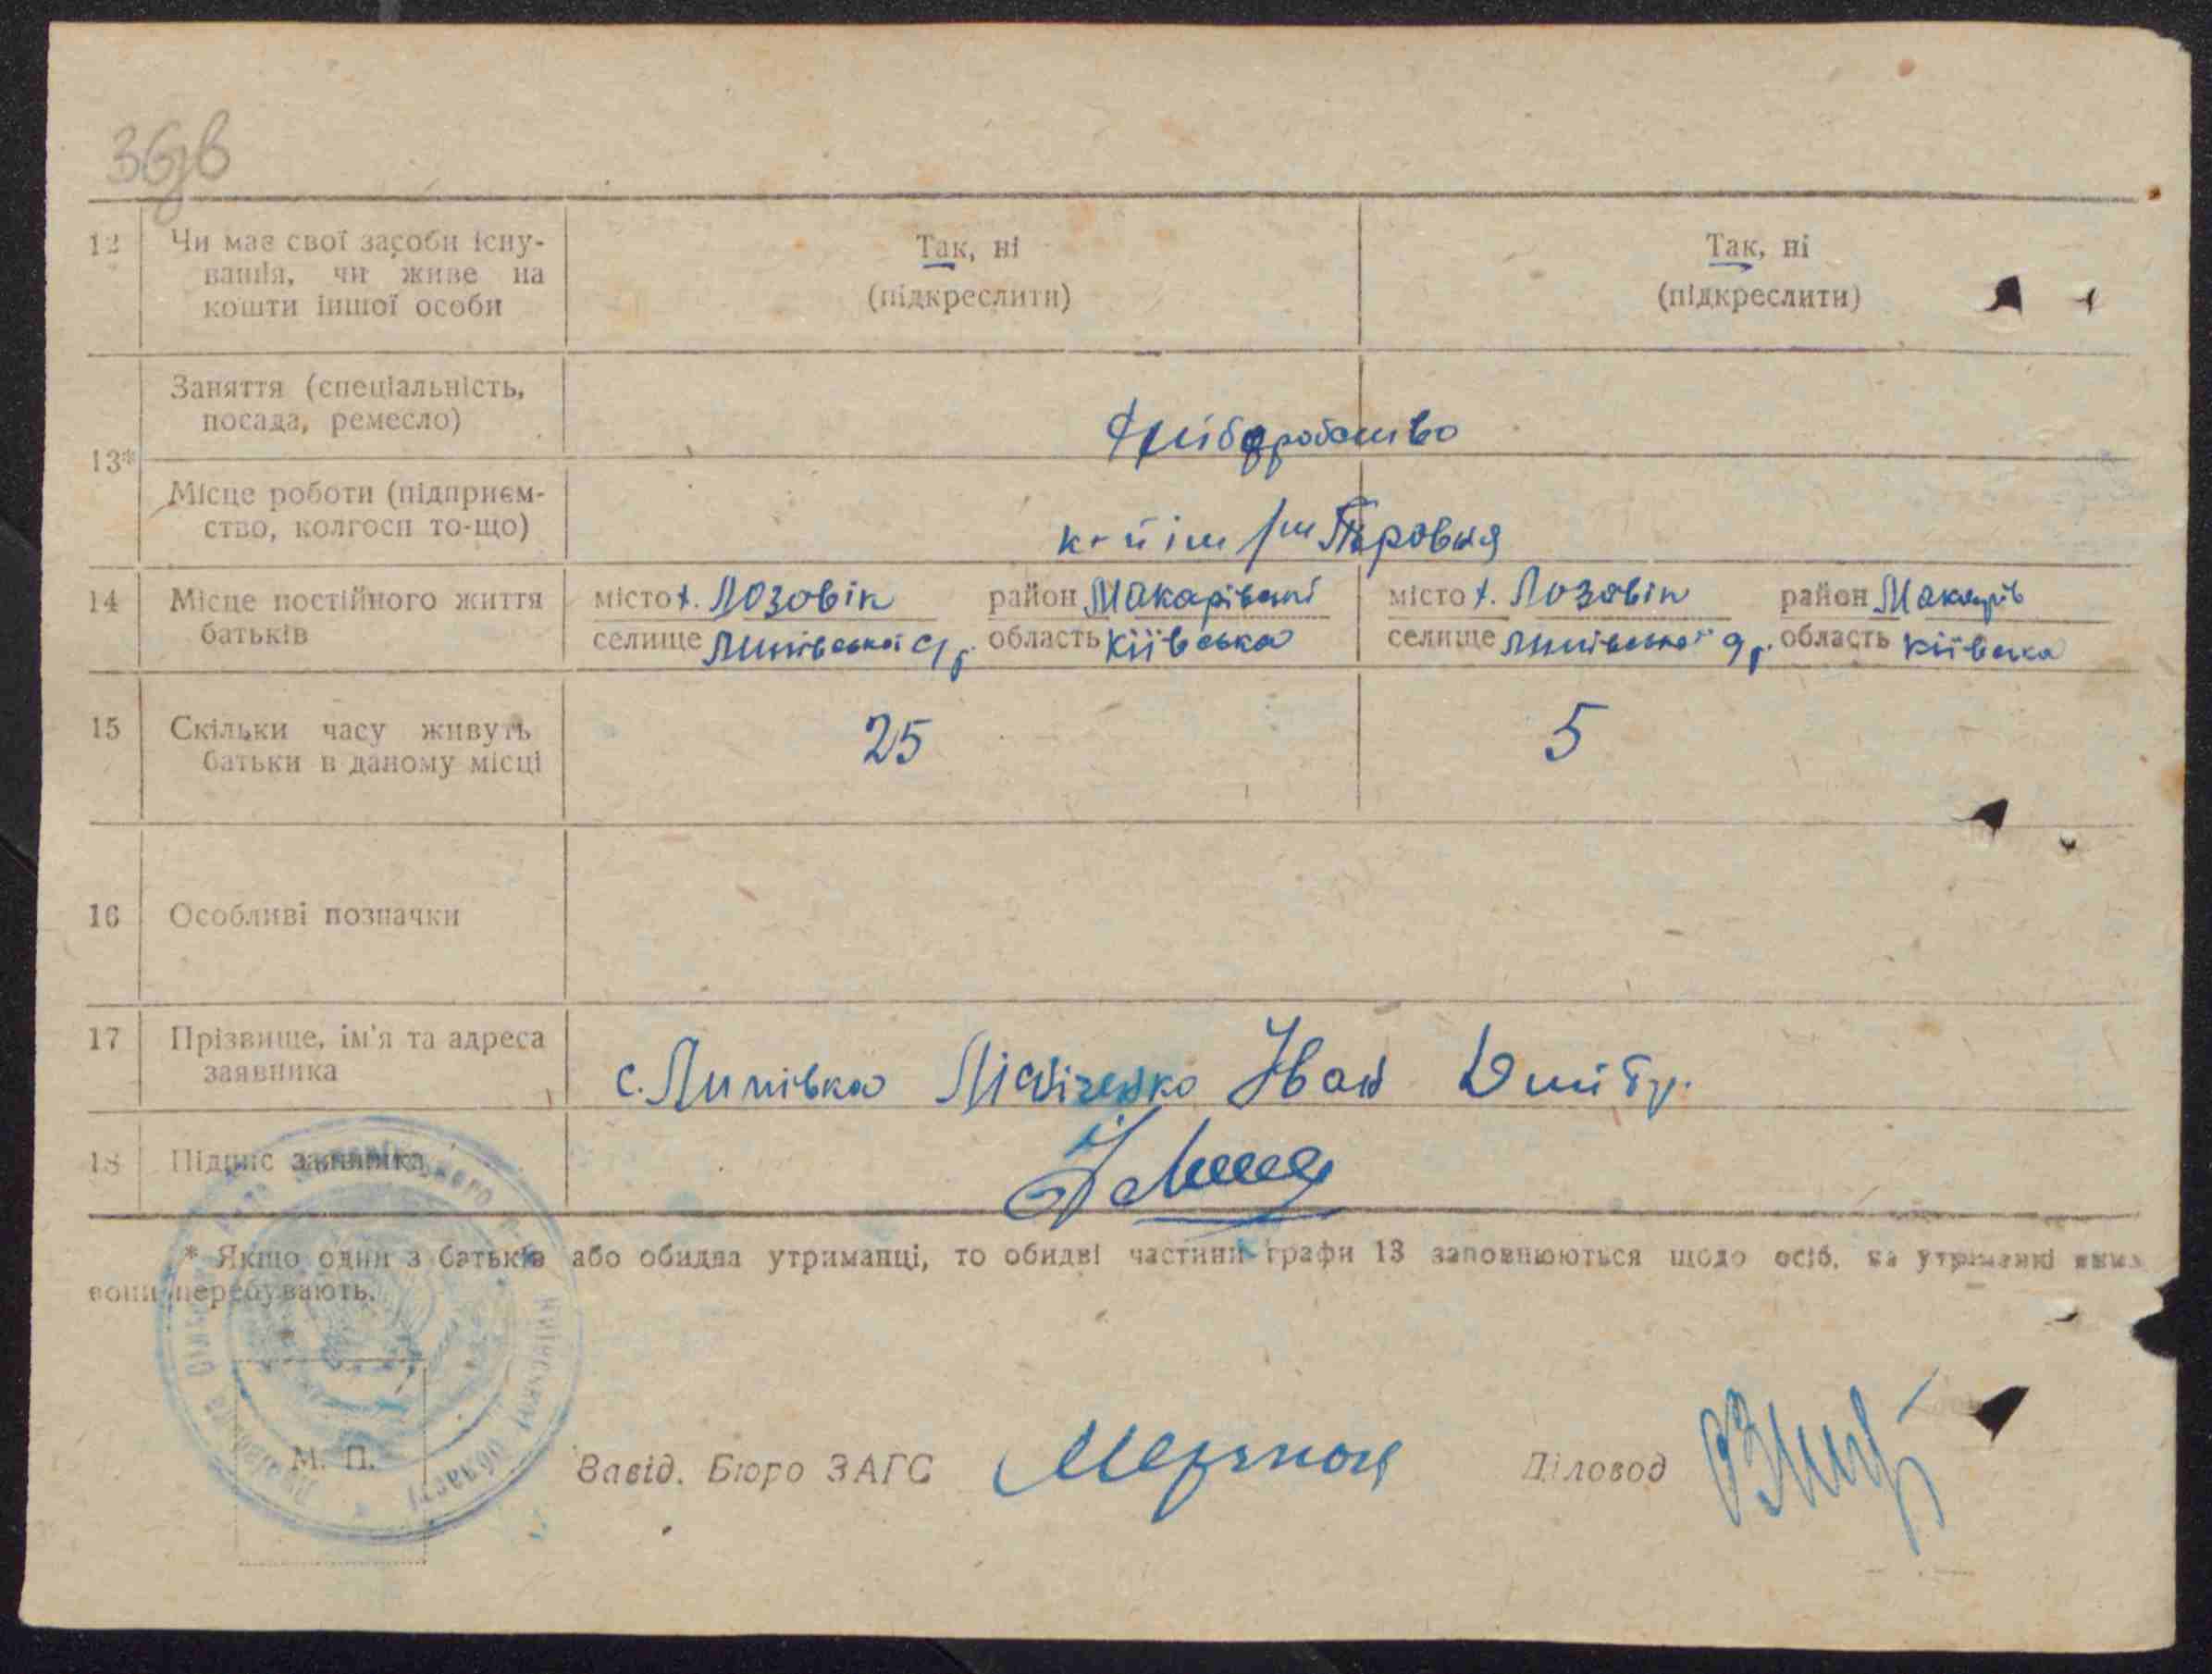 36зв
12 Чи має свої засоби існу- Так, ні Так, ні
вання, чи живе на (підкреслити) (підкреслити)
кошти іншої особи
Заняття (спеціальність,
посада, ремесло) Хліборобство
13*
Місце роботи (підприєм-
ство, колгосп то-що)
14 Місце постійного життя місто х. Лозовік район Макарівськ місто х. Лозовік район Макарів
батьків селище Липівської с/р. область Київська селище Липівської с/р. область Київська
15 Скільки часу живуть 25 5
батьки в даному місці
16 Особливі позначки
17 Прізвище, ім'я та адреса
заявника с. Липівка Іван
18 Підпис заявника
* Якщо один з батьків або обидва утриманці, то обидві частини графи 13 заповнюються щодо осіб, на утриманні яких
вони перебувають.
М. П. Завід. Бюро ЗАГС Діловод